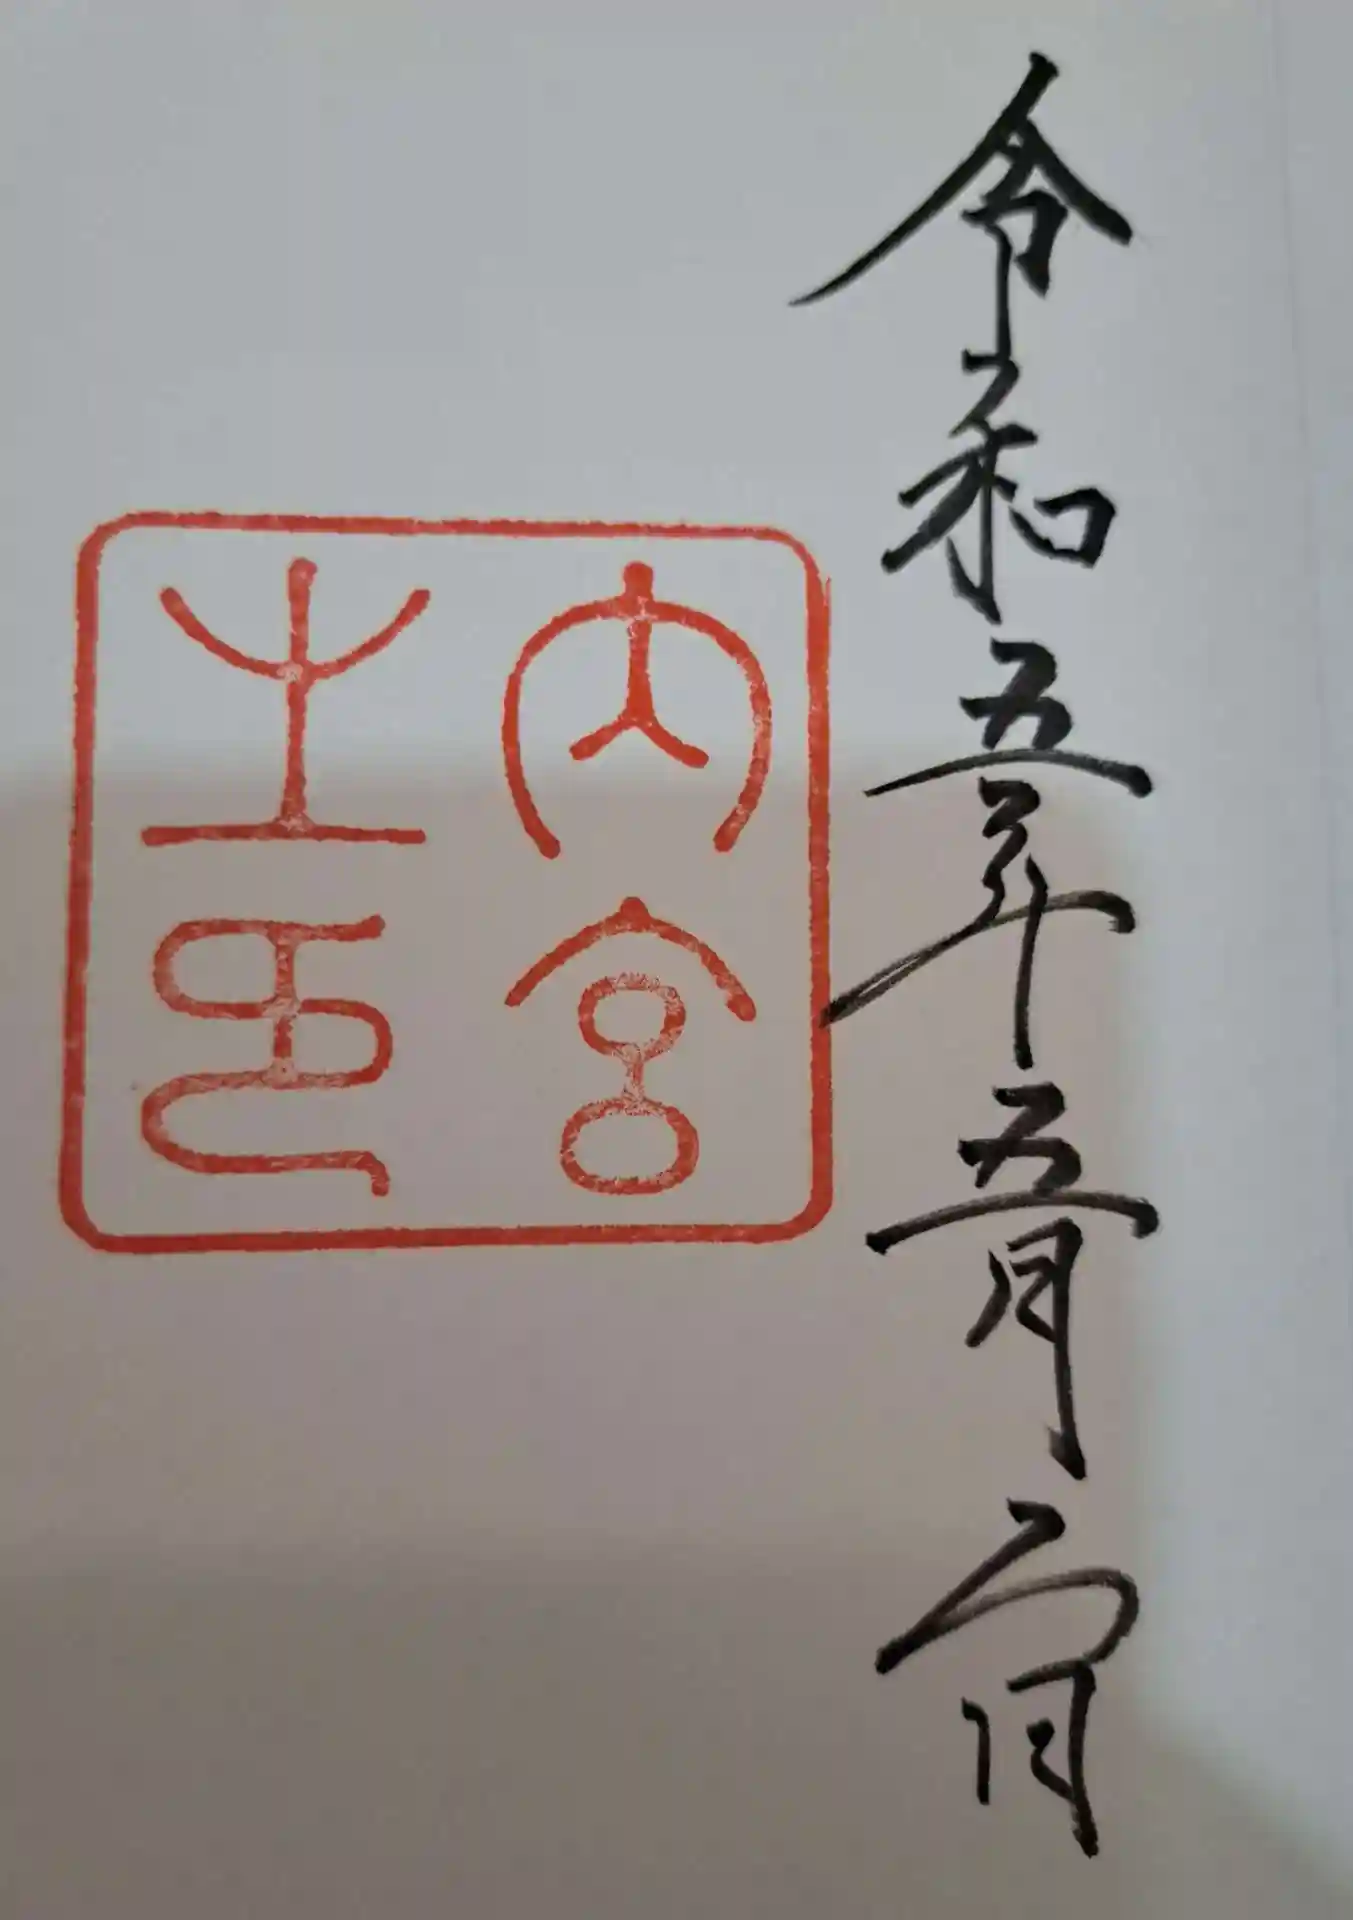 令和五年五月二日
内宮
之印